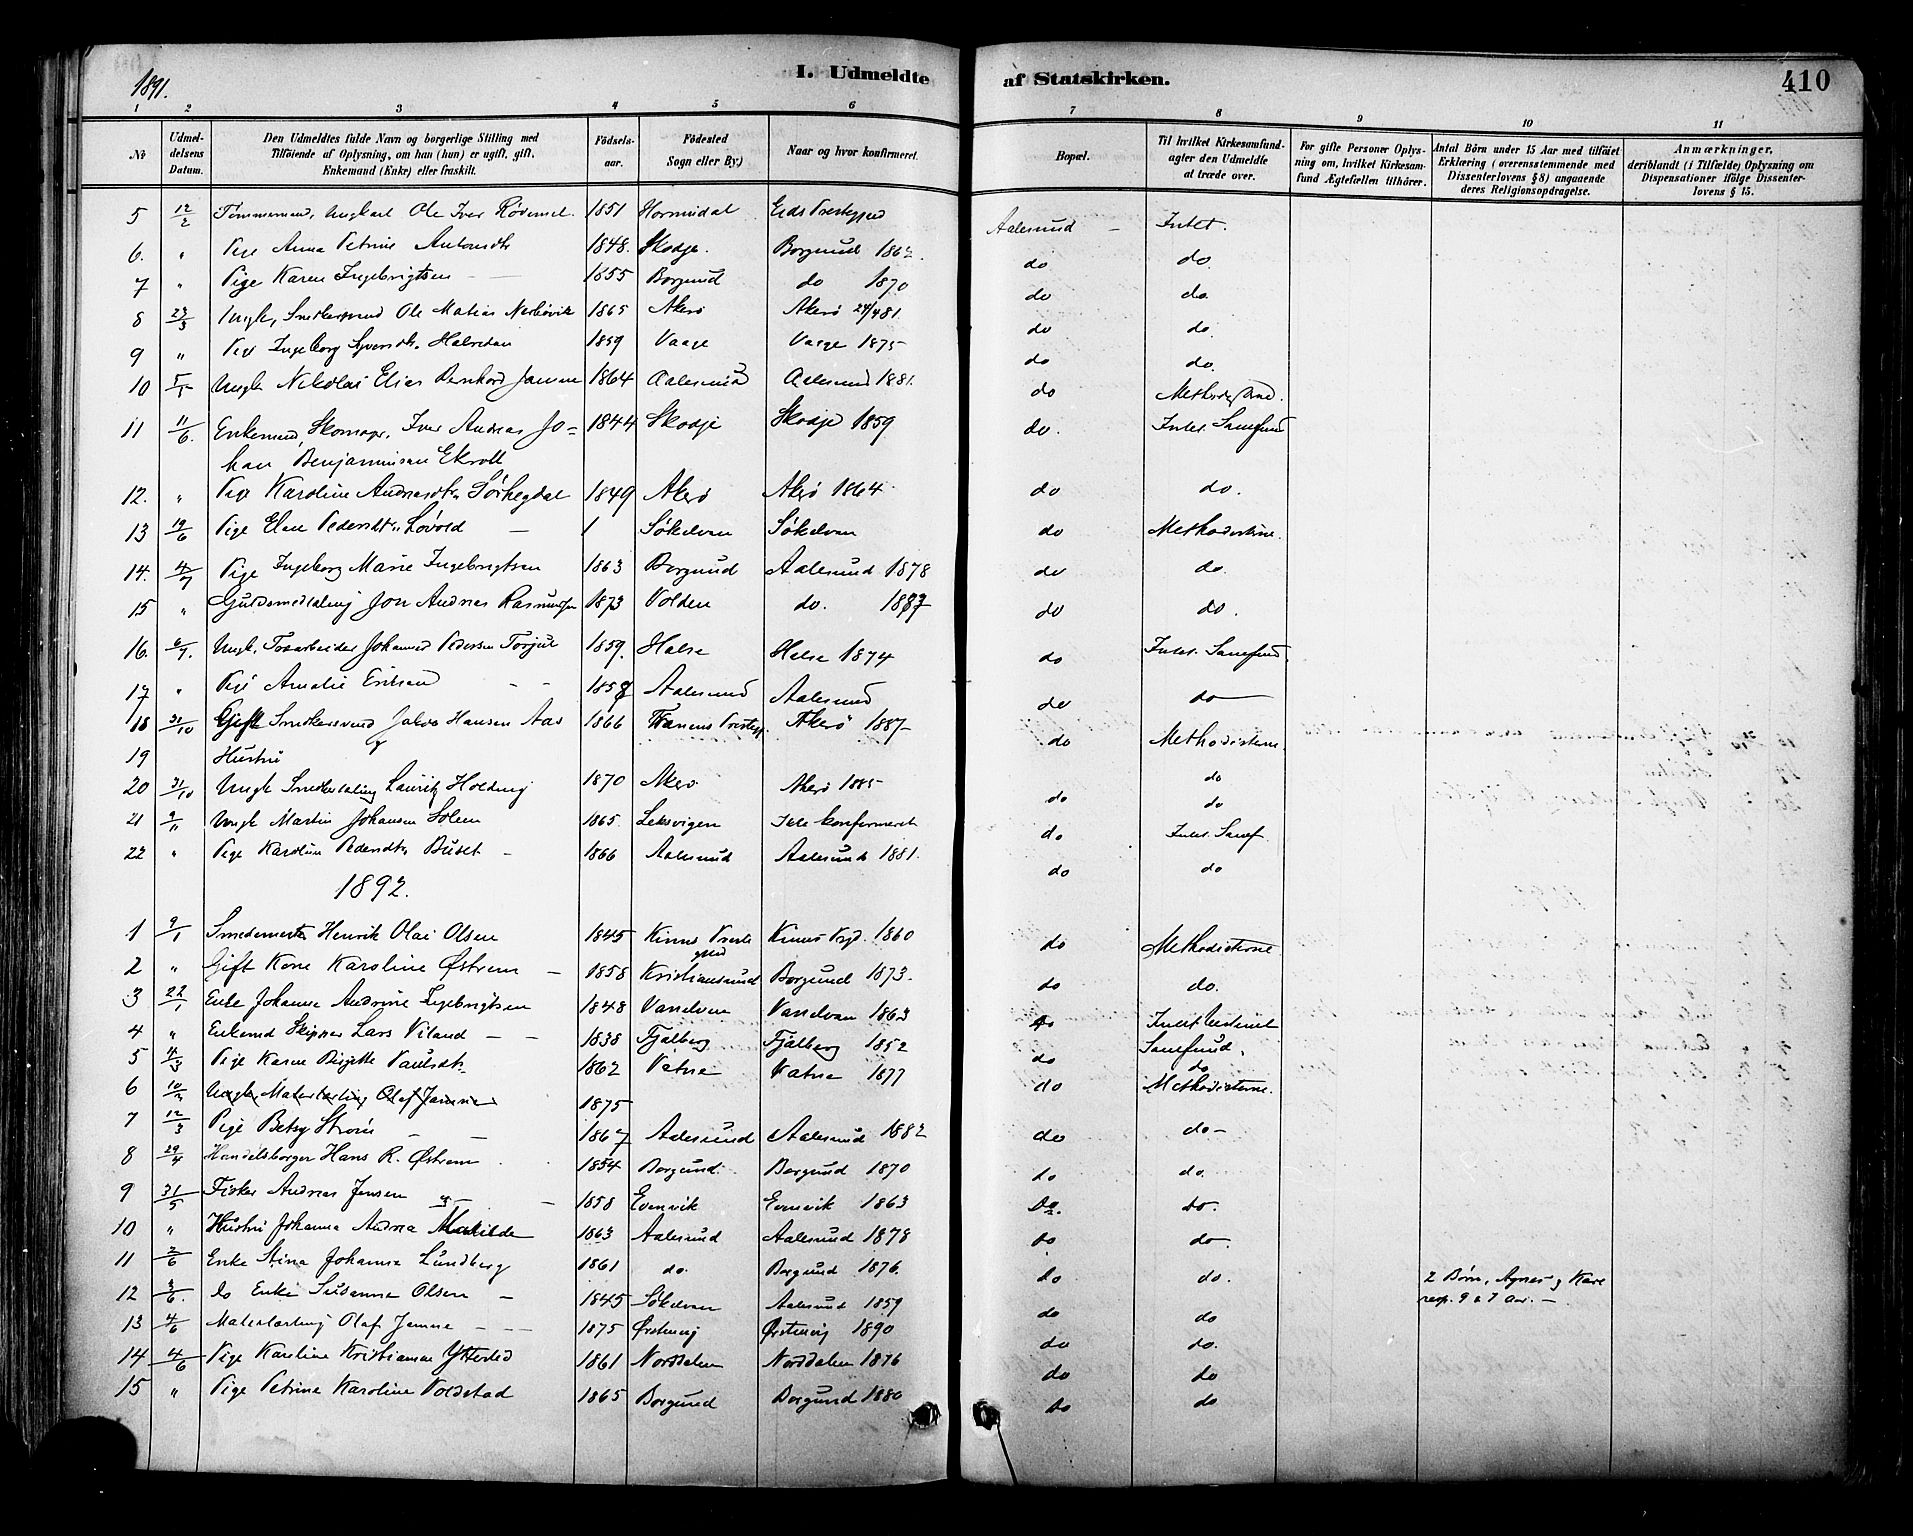 1891.
I. Udmeldte af Statskirken.
410
1 2 3 4 5 6 7 8 9 10 11
No
Udmeldelsens Datum.
Den Udmeldtes fulde Navn og borgerlige Stilling med Tilføiende af Oplysning, om han (hun) er ugift, gift, Enkemand (Enke) eller fraskilt.
Fødselsaar.
Fødested Sogn eller By)
Naar og hvor konfirmeret.
Bopæl.
Til hvilket Kirkesamfund agter den Udmeldte at træde over.
For gifte Personer Oplysning om, hvilket Kirkesamfund Ægtefællen tilhører.
Antal Börn under 15 Aar med tilføiet Erklæring (overensstemmende med Dissenterlovens § 8) angaaende deres Religionsopdragelse.
Anmærkninger, deriblandt (i Tilfælde) Oplysning om Dispensationer ifølge Dissenterlovens § 15.
5 12/2 Tømmermand, Ungkarl Ole Iver 1851 Eids Præstegjed Aalesund - Intet.
6. " Pige Anna Petrine 1848. Skodje. Borgund 1862. do do.
7 " Pige Karen Ingebrigtsen 1855 Borgund do 1870 do do.
8 23/3 Ungk, Snedkersvend Ole Matias 1865 Akerø Akerø 24/4 81. do do.
9 " Pige Ingeborg 1859 Vaage Vaage 1875 do do.
10 Ungk Nikolai Elias Bernhard Jansen 1864 Aalesund Aalesund 1881. do
11 11/6. Enkemand, Skomager, Iver Andreas Jo=
han Benjaminsen Ekroll 1844 Skodje Skodje 1859 do. Inlet. Samfund
12. " Pige Karoline 1849 Akerø Akerø 1864. do do.
13 19/6 Pige Elen Pedersdtr. Løvold - Søkelven Søkelven do Methodisterne.
14. 4/7 Pige Ingeborg Marie Ingebrigtsen 1863 Borgund Aalesund 1878 do do.
15 " Guldsmedlærling Jon Andreas Rasmussen 1873 Volden do. 1887 do do.
16. 6/7. Ungk. Johannes Pedersen Torjul 1859. Halse Halse 1874 do Inlet. Samfund.
17 " Pige Amalie Eriksen 1858 Aalesund Aalesund do do
18 31/10 Gift Snedkersvend Jakob Hansen Aas 1866 Akerø 1887 do Methodisterne.
19 Hustru do
20 31/10 Ungk Snedkerlærling Lauritz Holding 1870 Akerø Akerø 1885 do do
21 9/11 Ungk Martin Johansen Solem 1865. Leksvigen Ikke konfirmeret do Inlet. Samf.
22 " Pige Karoline Pedersdtr. - 1866 Aalesund Aalesund 1881. do do
1892.
1 9/1 Smedemester Henrik Olai Olsen 1845 Kinns Præstegjeld Kinns Pgd. 1860 do Methodisterne
2 " Gift Kone Karoline Østrem - 1858 Kristiansund Borgund 1873. do do.
3 22/1 Enke Johanna Andrine Ingebrigtsen 1848 Vanelven Vanelven 1863 do
4 " Enkemd Skipper Lars Viland - - 1838 Fjelberg Fjelberg 1852 do Samfund.
5 4/3 Pige Karen Birgitte Paulsdtr. 1862 Vatne Vatne 1877 do do
6 10/3 Ungk. Malerlærling Olaf Jamne 1875 Methodisterne.
7 12/3 Pige Betsy Strøm - - 1867 Aalesund Aalesund 1882 do do-
8 29/4 Handelsborger Hans R. Østrem 1854 Borgund Borgund 1870 do do.
9 31/5 Fisker Andreas Jensen - 1858 Evenvik Evenvik 1863 Do. do.
10 " Hustru Johanna Andrea Matilde 1863 Aalesund Aalesund 1878 do do.
11 2/6 Enke Stina Johanna Lundberg 1861 do. Borgund 1876. do do.
2 Børn, Agnes og Kare
resp. 9 & 7 Aar. -
12 3/6. do Enke Susanna Olsen - 1845 Søkelven Aalesund 1859 do do
13 4/6 Malerlærling Olaf Jamne - - 1875 Ørstenvig Ørstenvig 1890 do do.
14 4/6 Pige Karoline Kristianne 1861 Norddalen Norddalen 1876 do do
15 " Pige Petrine Karoline Voldstad 1865 Borgund Borgund 1880 do do